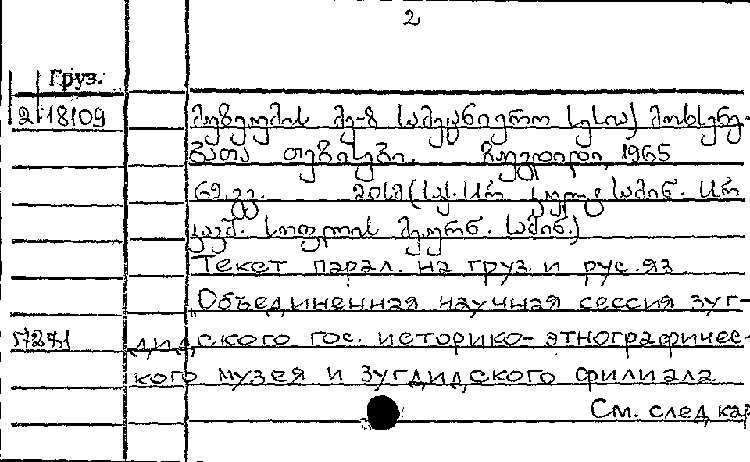 2
Груз.
2 18109 მუზეუმის მე-8 სამეცნიერო სესია) მოხსენე-
ბათა თეზისები. ზუგდიდი, 1965
69 გვ. 20სმ (საქ. სსრ კულტ. სამინ. სსრ
კავშ. სოფლის მეურნ. სამინ.)
Текст парал. на груз и рус. яз
Объединенная научная сессия Зуг-
дидского гос. историко-этнографичес-
кого музея и Зугдидского филиала
См. след кар